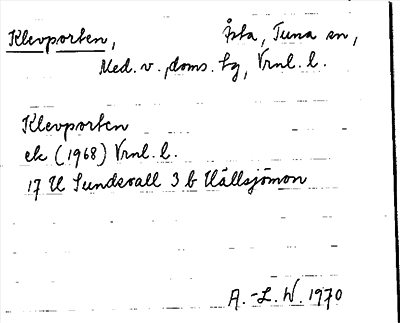 Klevporten, Åsta, Tuna sn,
Med. v. doms. tg, Vrnl. l.
Klevporten
ek (1968) Vrnl. l.
17 H Sundsvall 3 b Hällsjömon
A.-L. W. 1970